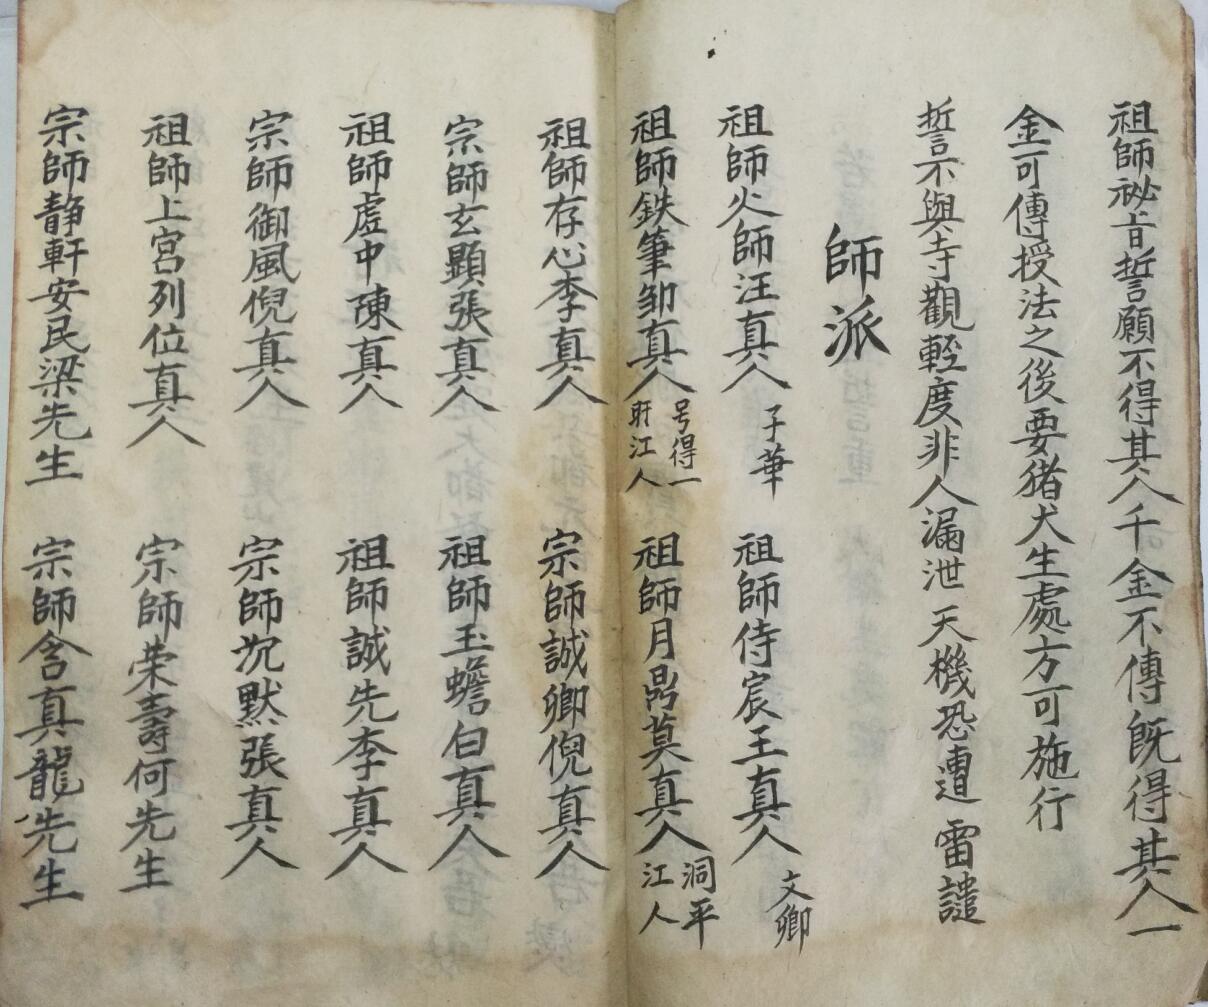 祖師祕旨誓願不得其人千金不傳既得其人一
金可傳授法之後要猪犬生處方可施行
誓不與寺觀輕度非人漏泄天機恐遭雷譴
師派
祖師火師汪真人子華 祖師侍宸王真人文卿
祖師鉄筆鄒真人号得一盱江人 祖師月鼎莫真人洞平江人
祖師存心李真人 宗師誠卿倪真人
宗師玄顯張真人 祖師玉蟾白真人
祖師虛中陳真人 祖師誠先李真人
宗師御風倪真人 宗師沉默張真人
祖師上宮列位真人 宗師荣壽何先生
宗師靜軒安民梁先生 宗師含真龍先生